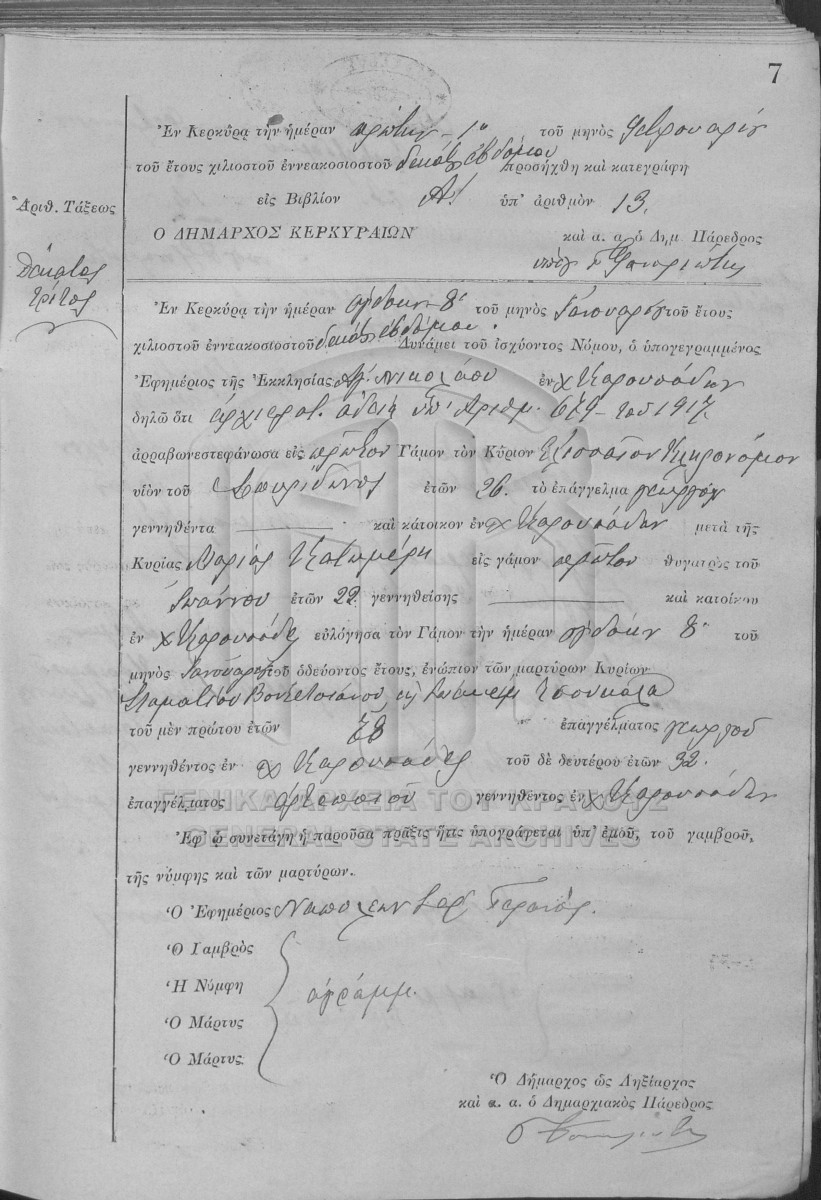 7
Ἐν Κερκύρᾳ τὴν ἡμέραν πρώτην - 1ην τοῦ μηνὸς Φεβρουαρίου
τοῦ ἔτους χιλιοστοῦ ἐννεακοσιοστοῦ δεκάτου ἑβδόμου προσήχθη καὶ κατεγράφη
εἰς Βιβλίον Α! ὑπ' ἀριθμὸν 13.
Ἀριθ. Τάξεως
Ο ΔΗΜΑΡΧΟΣ ΚΕΡΚΥΡΑΙΩΝ καὶ α. α. ὁ Δημ Πάρεδρος
Δέκατος
τρίτος
Ἐν Κερκύρᾳ τὴν ἡμέραν ὀγδόην 8' τοῦ μηνὸς Ἰανουαρίου τοῦ ἔτους
χιλιοστοῦ ἐννεακοσιοστοῦ δεκάτου ἑβδόμου. Δυνάμει τοῦ ἰσχύοντος Νόμου, ὁ ὑπογεγραμμένος
Ἐφημέριος τῆς Ἐκκλησίας Ἁγ. Νικολάου ἐν χ Καρουσάδων
δηλῶ ὅτι ἀρχιερατ. ἀδείᾳ ὑπ' Ἀριθμ. 679 - τοῦ 1917
ἀρραβωνεστεφάνωσα εἰς πρῶτον Γάμον τὸν Κύριον Ἐλισσαῖον Κληρονόμον
υἱὸν τοῦ Σπυρίδωνος ἐτῶν 26. τὸ ἐπάγγελμα γεωργόν
γεννηθέντα καὶ κάτοικον ἐν χ Καρουσάδων μετὰ τῆς
Κυρίας Μαρίας Κατωμέρη εἰς γάμον πρῶτον θυγατρὸς τοῦ
Ἰωάννου ἐτῶν 22. γεννηθείσης καὶ κατοίκου
ἐν χ Καρουσάδες εὐλόγησα τὸν Γάμον τὴν ἡμέραν ὀγδόην 8' τοῦ
μηνὸς Ἰανουαρίου τοῦ ὁδεύοντος ἔτους, ἐνώπιον τῶν μαρτύρων Κυρίων
Σταματίου Βενετσιάνου Τσουκαλᾶ
τοῦ μὲν πρώτου ἐτῶν ἐπαγγέλματος γεωργοῦ
γεννηθέντος ἐν χ Καρουσάδες τοῦ δὲ δευτέρου ἐτῶν 32.
ἐπαγγέλματος γεννηθέντος ἐν χ Καρουσάδων
ΓΕΝΙΚΑ ΑΡΧΕΙΑ ΤΟΥ ΚΡΑΤΟΥΣ
GENERAL STATE ARCHIVES
Ἐφ' ᾧ συνετάγη ἡ παροῦσα πρᾶξις ἥτις ὑπογράφεται ὑπ' ἐμοῦ, τοῦ γαμβροῦ,
τῆς νύμφης καὶ τῶν μαρτύρων.
Ὁ Ἐφημέριος Ναπολέων
Ὁ Γαμβρὸς
Ἡ Νύμφη ἀγράμμ.
Ὁ Μάρτυς
Ὁ Μάρτυς
Ὁ Δήμαρχος ὡς Ληξίαρχος
καὶ α. α. ὁ Δημαρχιακὸς Πάρεδρος